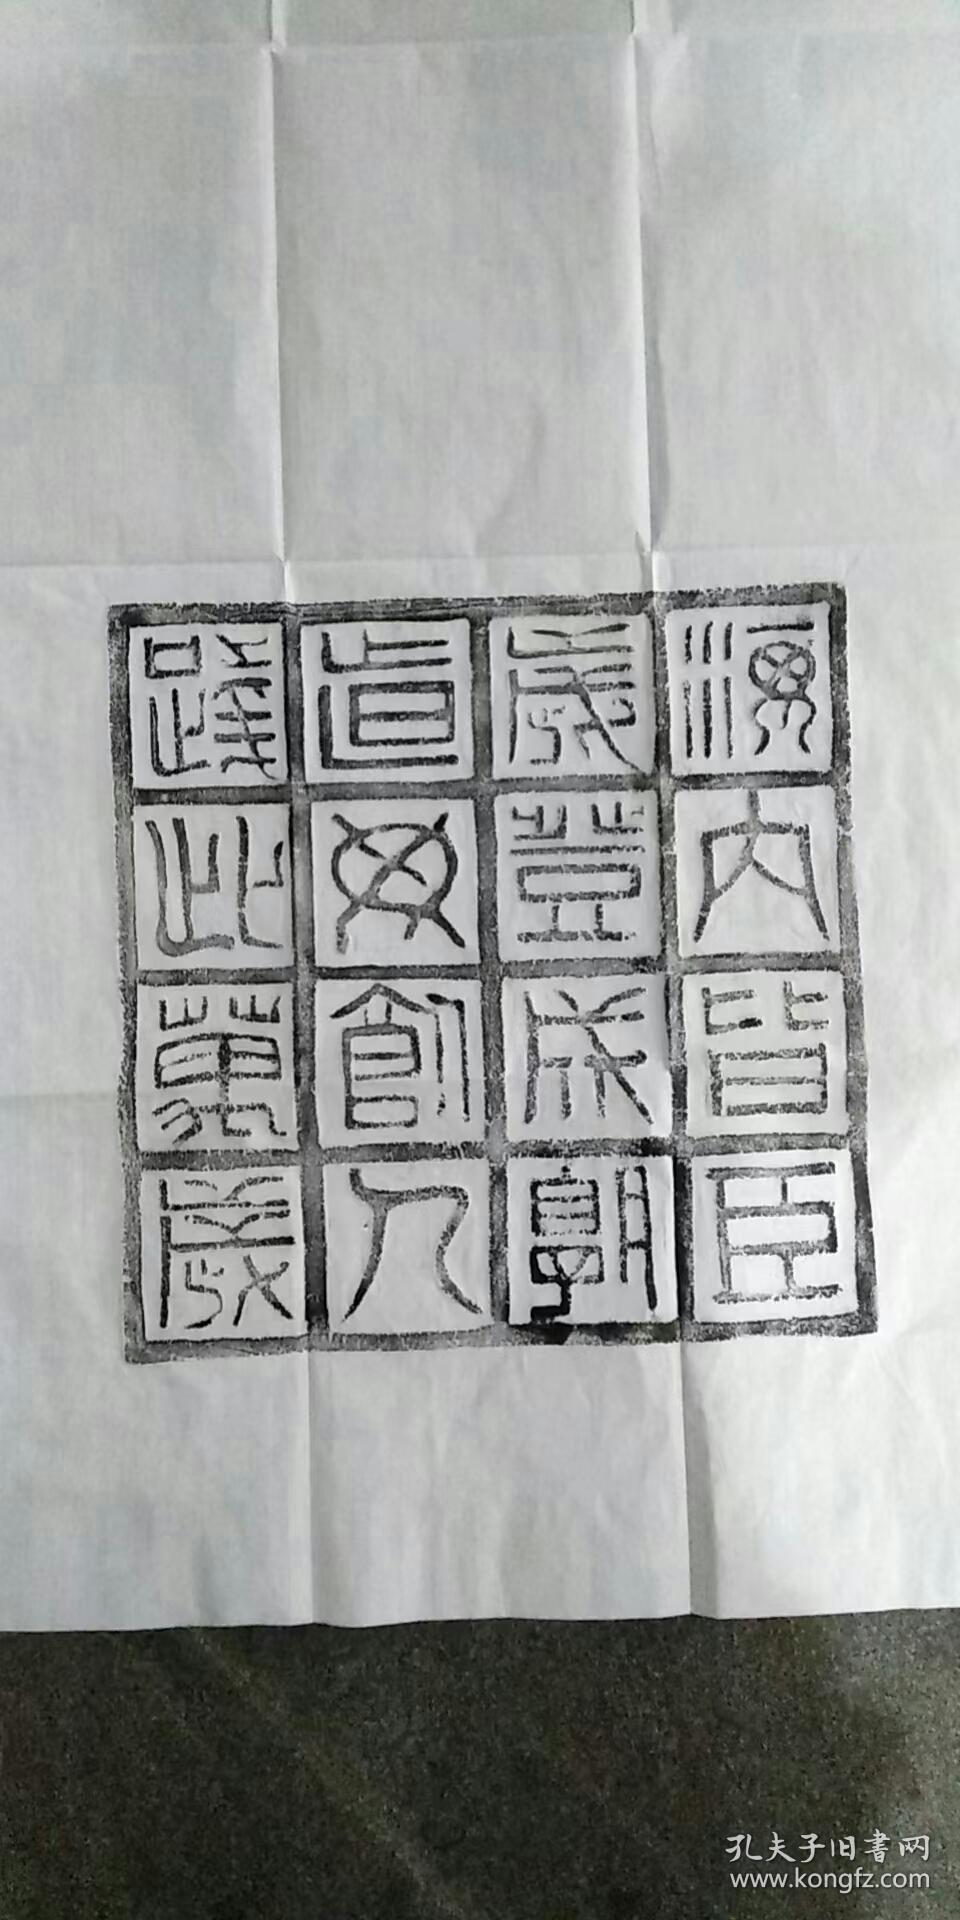 海内皆臣
歲登成孰
道毋飢人
踐此萬歲
孔夫子旧書网
www.kongfz.com